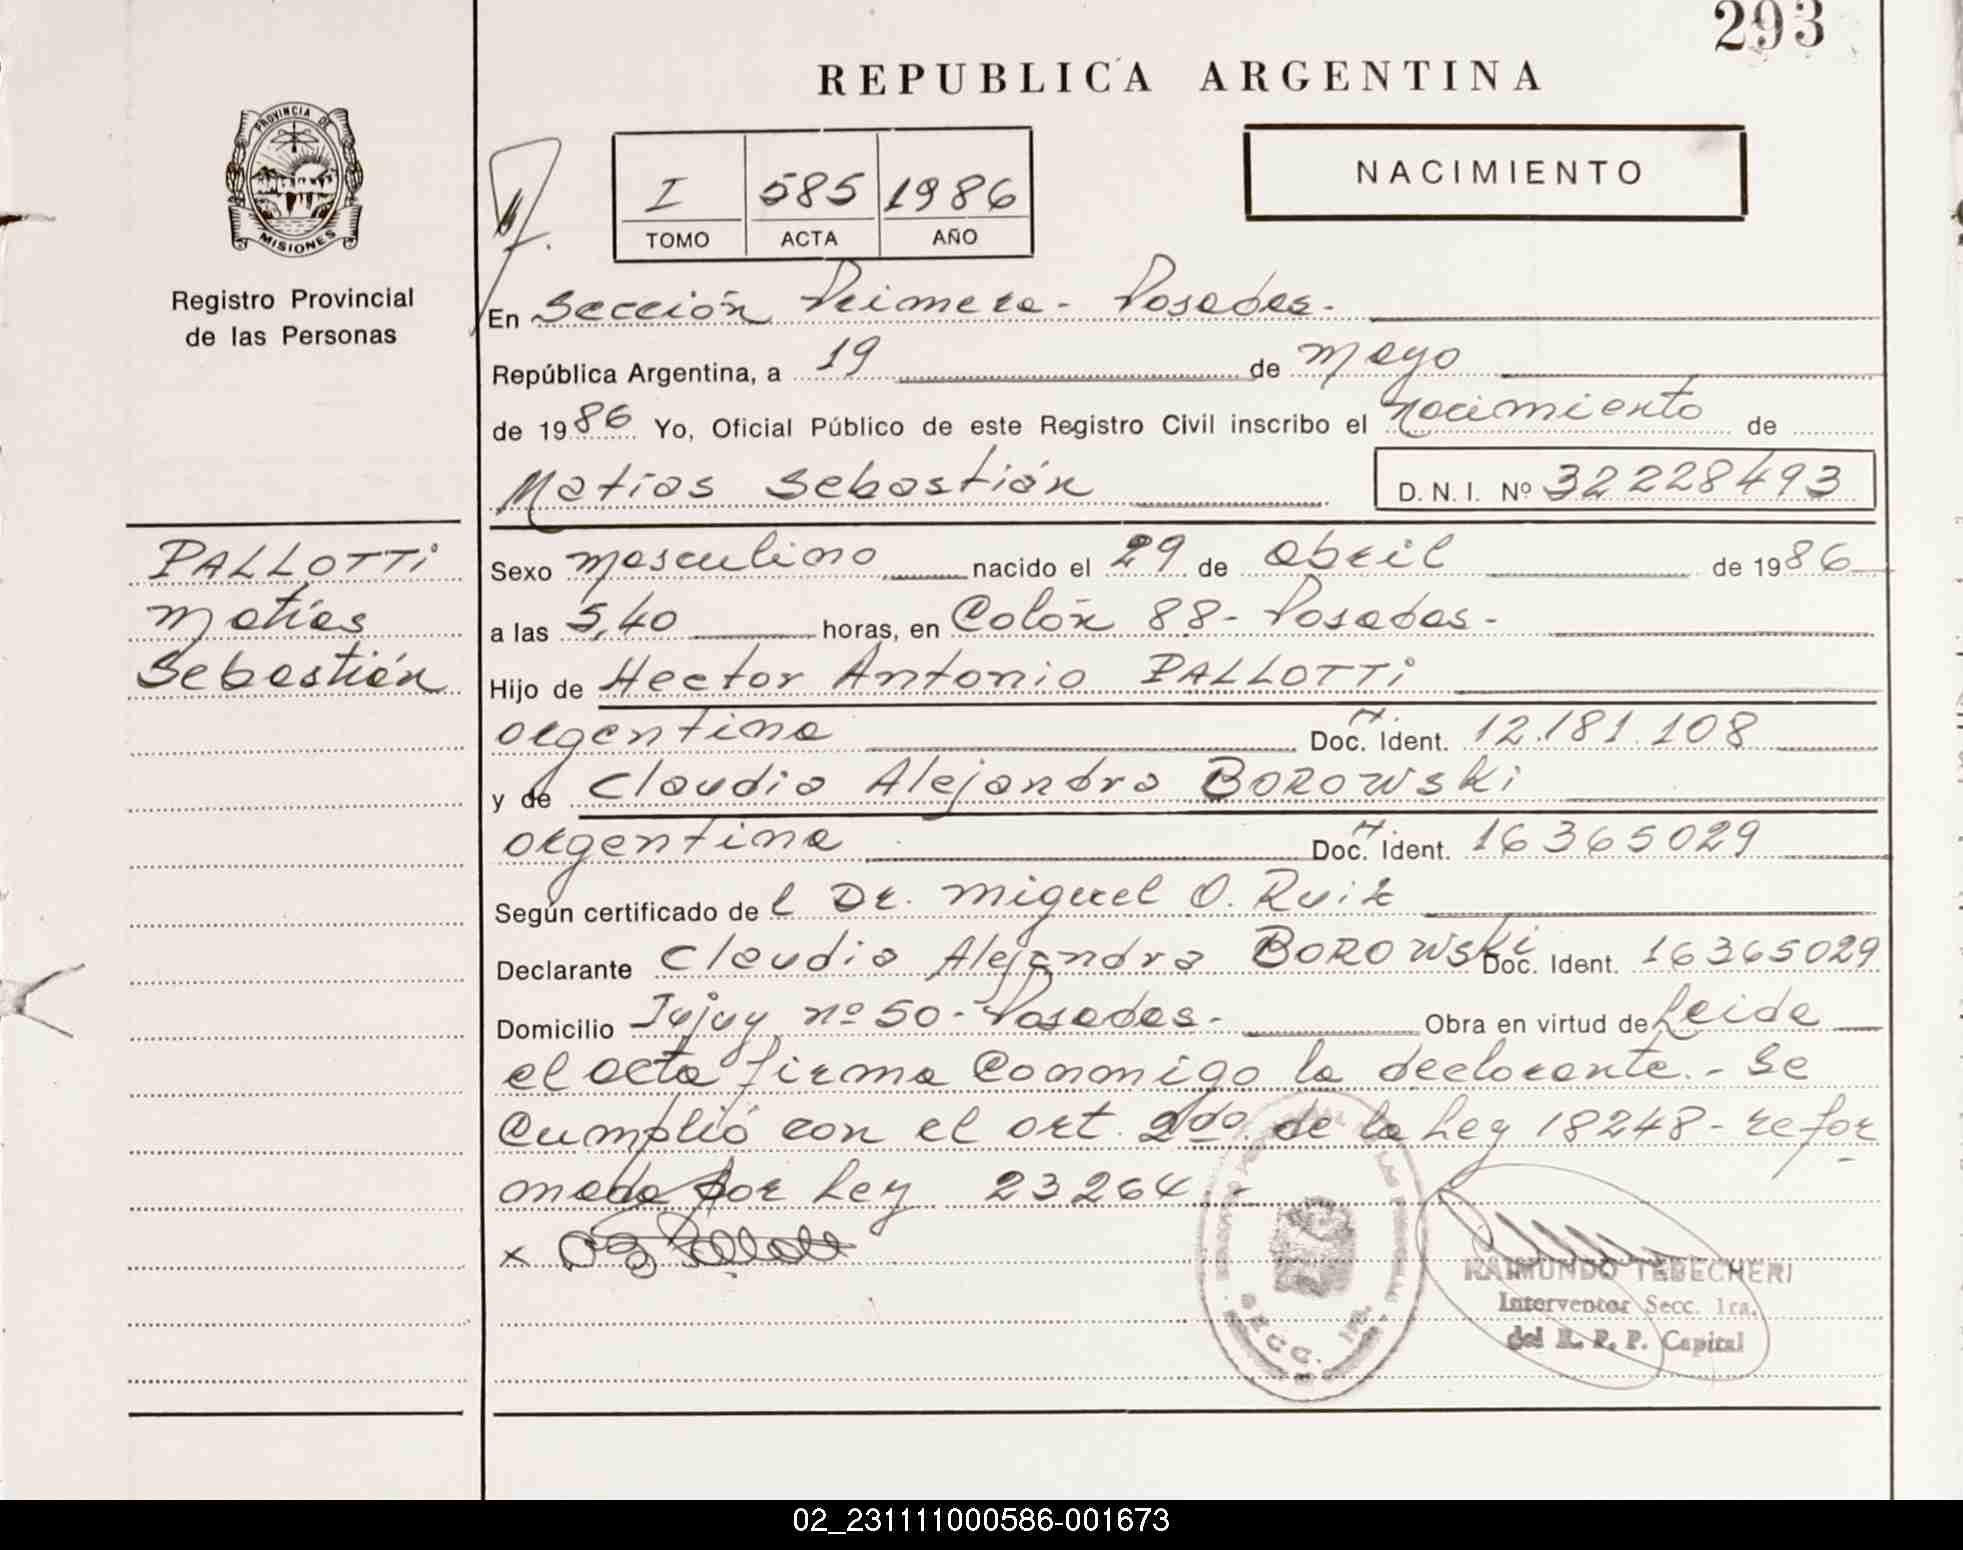 293
REPUBLICA ARGENTINA
PROVINCIA DE
MISIONES
Registro Provincial
de las Personas
I 585 1986
TOMO ACTA AÑO
NACIMIENTO
En Sección Primera - Posadas -
República Argentina, a 19 de mayo
de 1986 Yo, Oficial Público de este Registro Civil inscribo el nacimiento de
Matías Sebastián D.N.I. Nº 32228493
PALLOTTi
Matías
Sebastián
Sexo masculino nacido el 29 de abril de 1986
a las 5,40 horas, en Colón 88 - Posadas -
Hijo de Hector Antonio PALLOTTi
argentina Doc. Ident. 12.181.108
y de Claudia Alejandra BOROWSKi
argentina Doc. Ident. 16365029
Según certificado de l Dr. Miguel O. Ruiz
Declarante Claudia Alejandra BOROWSKi Doc. Ident. 16365029
Domicilio Jujuy nº 50 - Posadas - Obra en virtud de Leida
el acta firma conmigo la declarante. - Se
cumplió con el art. 2do. de la Ley 18248 - refor
mada por Ley 23264 -
x
SECC. 1RA.
RAIMUNDO TEBECHERI
Interventor Secc. 1ra.
del R. P. P. Capital
02_231111000586-001673